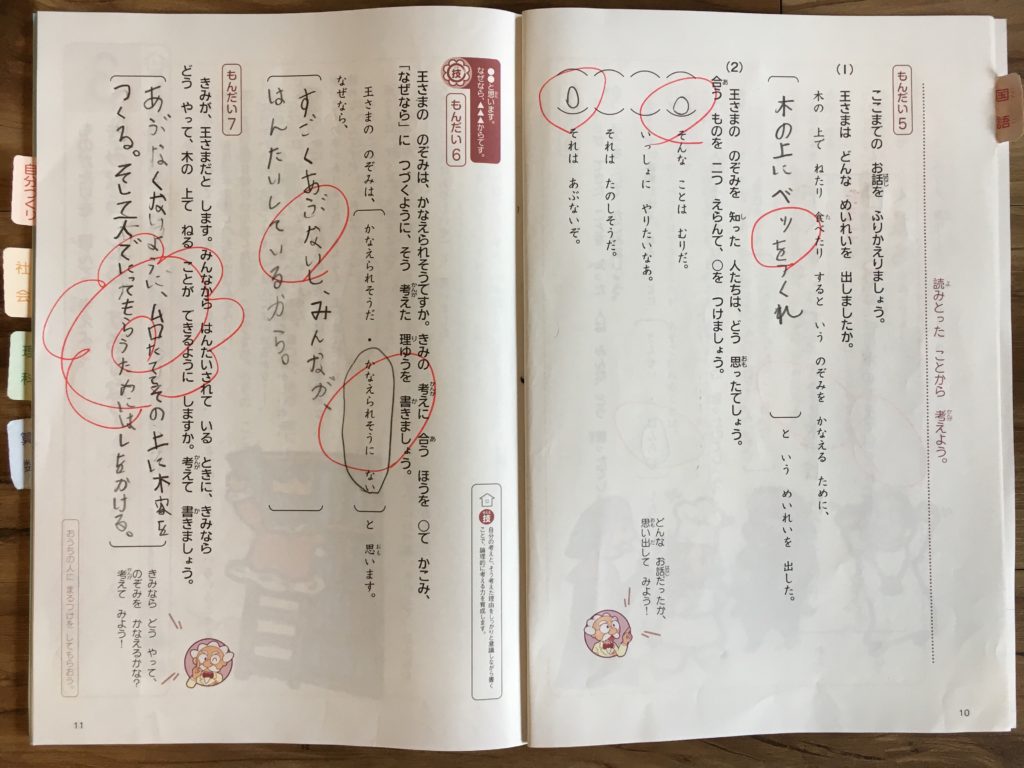 国語
読みとった ことから 考えよう。
もんだい5
ここまでの お話を ふりかえりましょう。
(1) 王さまは どんな めいれいを 出しましたか。
木の 上で ねたり 食べたり すると いう のぞみを かなえる ために、
木の上にベッをつくれ
と いう めいれいを 出した。
(2) 王さまの のぞみを 知った 人たちは、どう 思ったでしょう。
合う ものを 二つ えらんで、○を つけましょう。
そんな ことは むりだ。
いっしょに やりたいなあ。
それは たのしそうだ。
それは あぶないぞ。
どんな お話だったか、
思い出して みよう!
10
●●と思います。
なぜなら、▲▲▲からです。
技
もんだい6
王さまの のぞみは、かなえられそうですか。きみの 考えに 合う ほうを ○で かこみ、
「なぜなら」に つづくように、そう 考えた 理ゆうを 書きましょう。
王さまの のぞみは、 かなえられそうだ ・ かなえられそうに ない と 思います。
なぜなら、
すごくあぶないし、みんなが、
はんたいしているから。
技
自分の考えと、そう考えた理由をしっかりと意識しながら書く
ことで、論理的に考える力を育成します。
もんだい7
きみが、王さまだと します。みんなから はんたいされて いる ときに、きみなら
どう やって、木の 上で ねる ことが できるように しますか。考えて 書きましょう。
あぶなくないように、
その上に木家を
つくる。そして
はしごをかける。
きみなら どう やって、
のぞみを かなえるかな?
考えて みよう!
おうちの人に まるつけを してもらおう。
11
社会
理科
算数